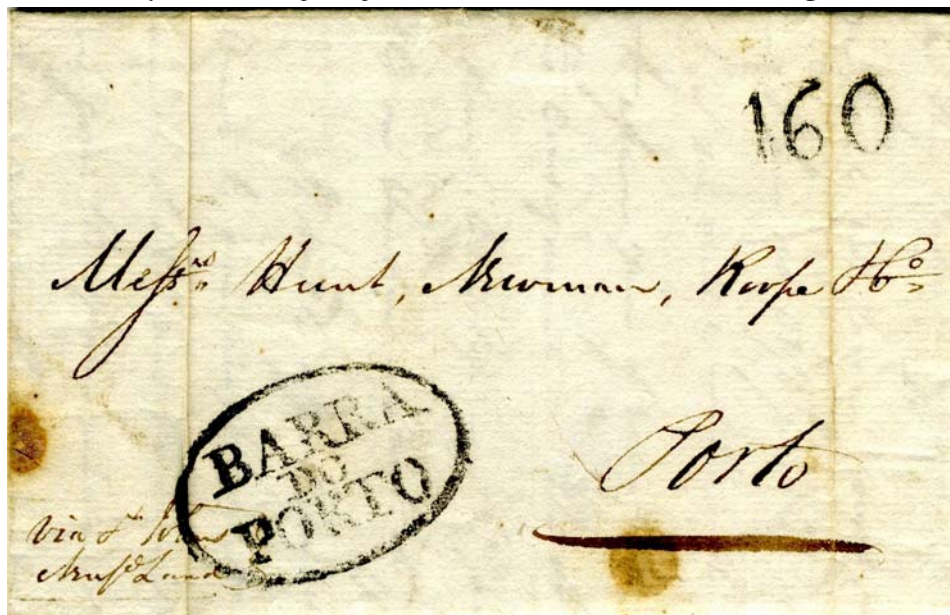 160
Messrs Hunt, Newman, Roope & Co
Porto
BARRA
DO
PORTO
via St Johns
Newfd Land